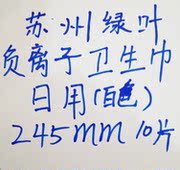 苏州绿叶
负离子卫生巾
日用(百色)
245mm 10片